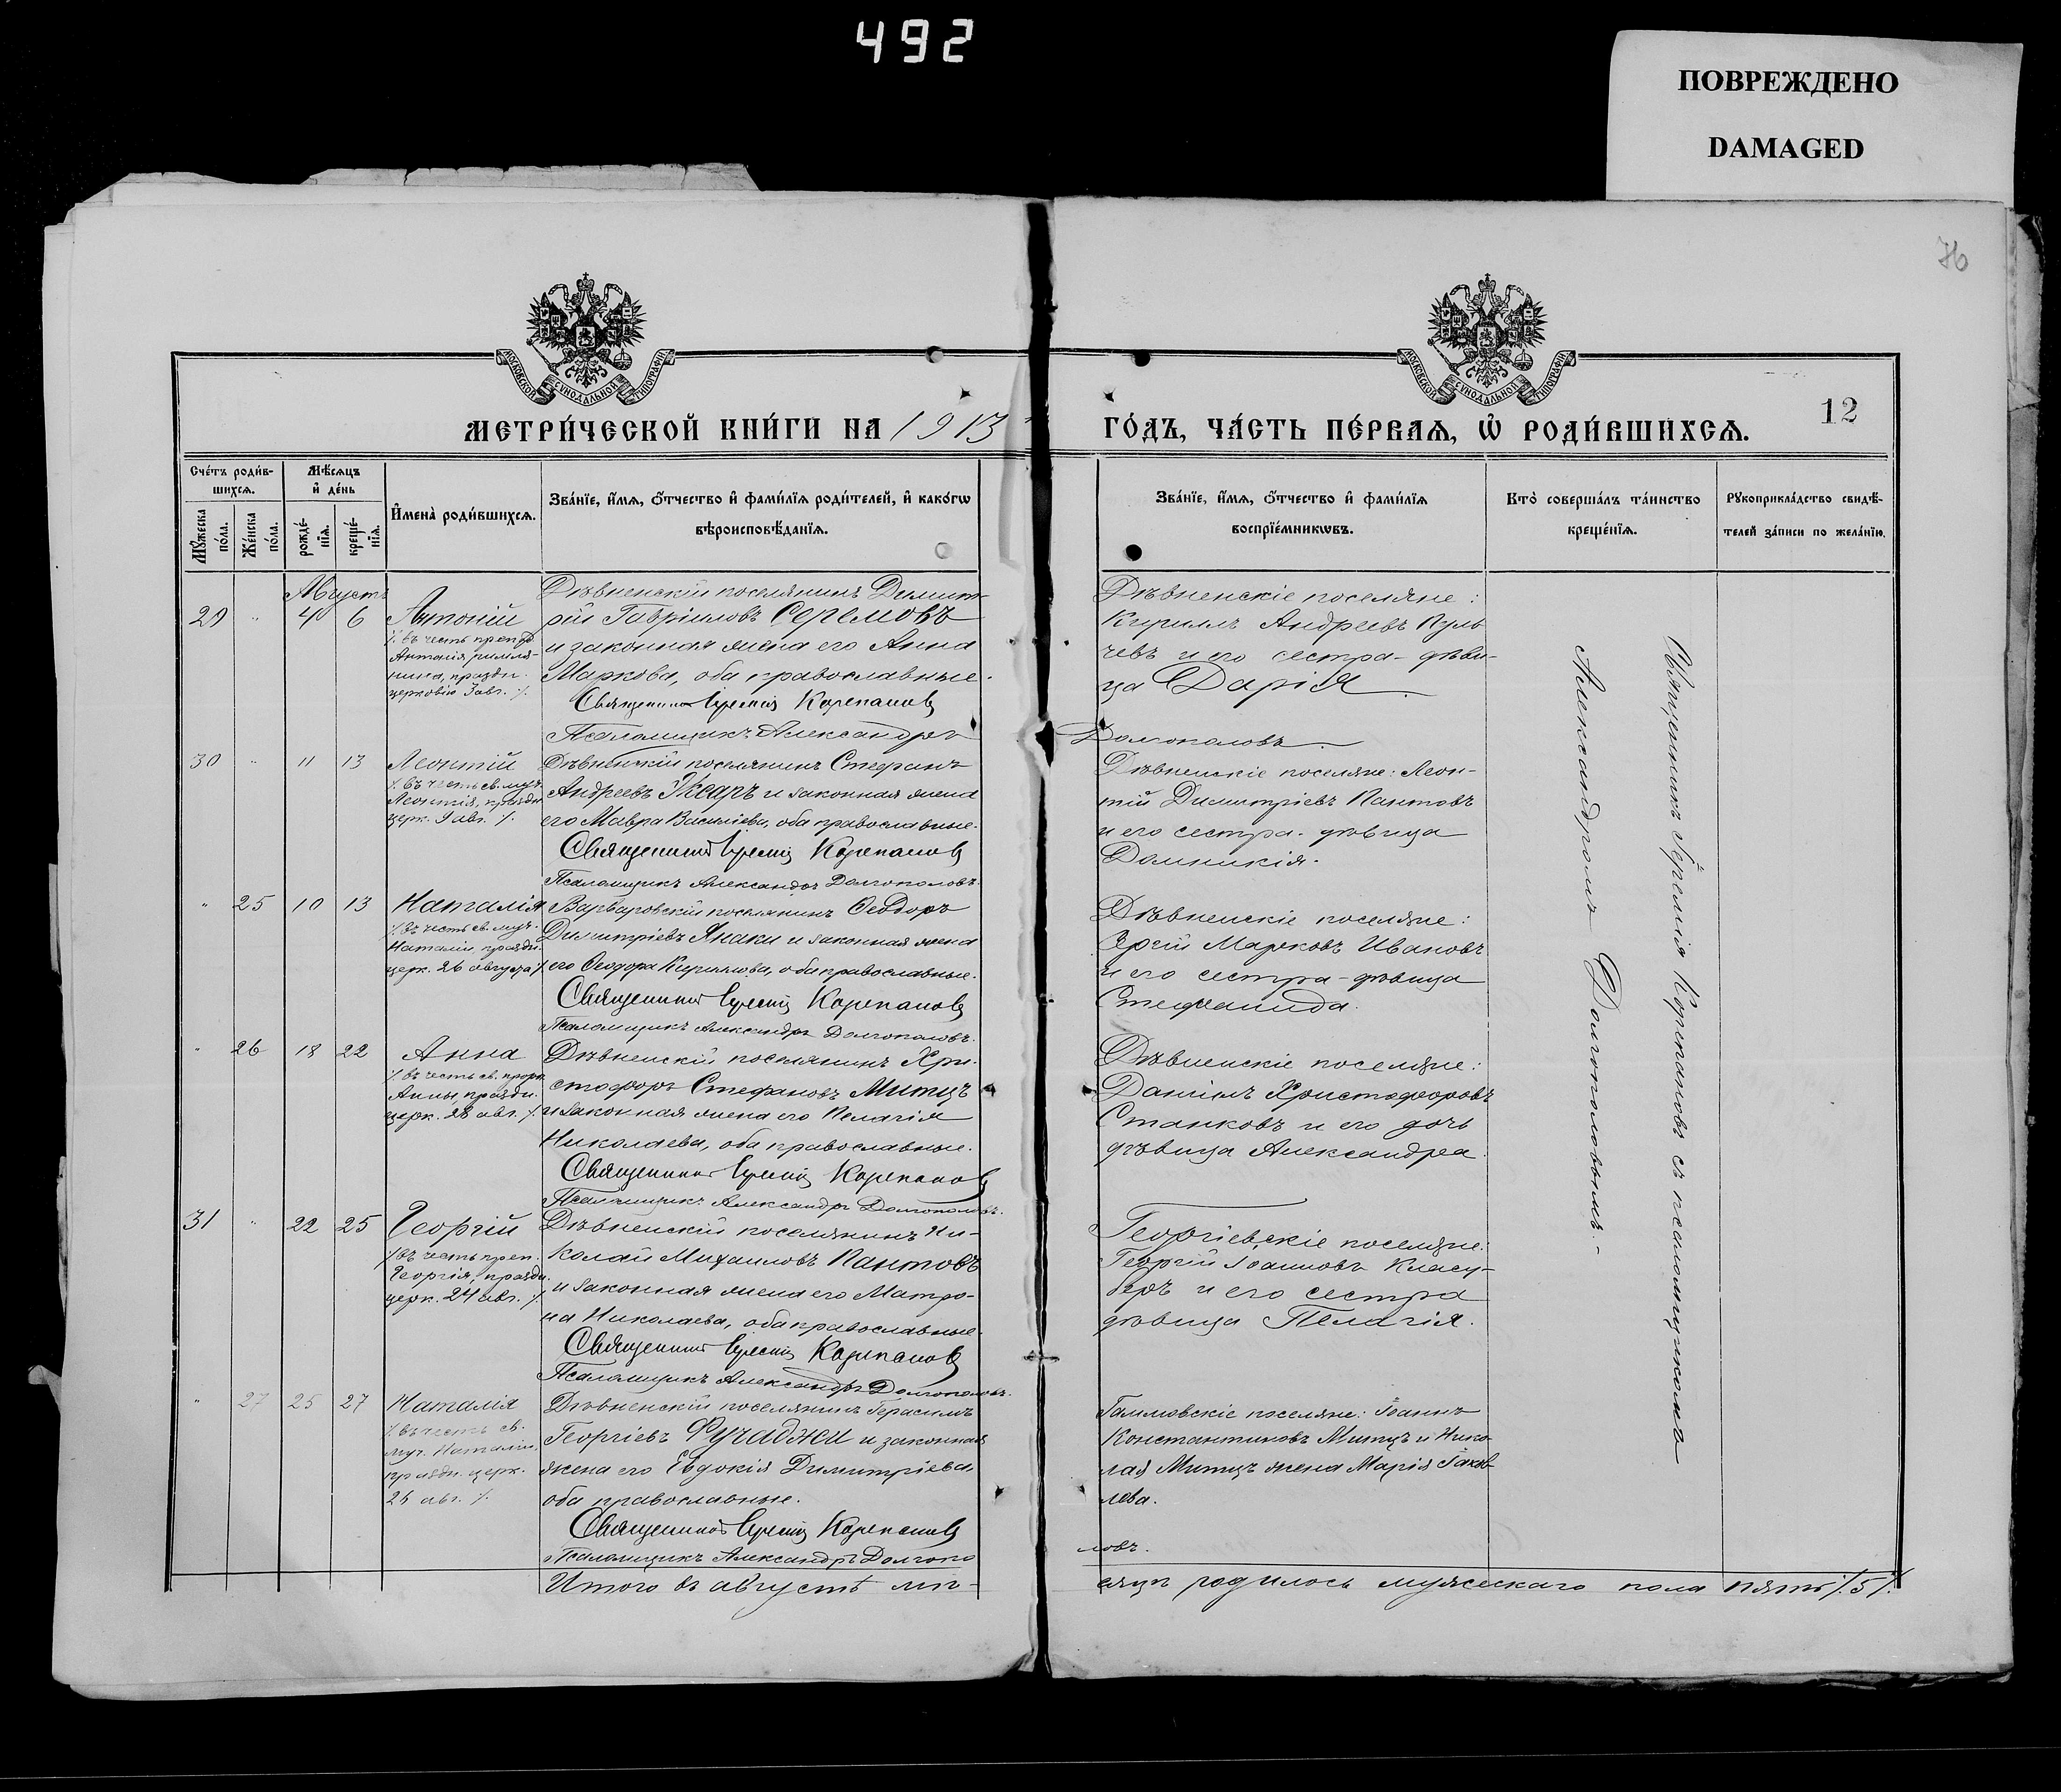 492
ПОВРЕЖДЕНО
DAMAGED
76
МОСКОВСКОЙ СѴНОДАЛЬНОЙ ТИПОГРАФІИ
МОСКОВСКОЙ СѴНОДАЛЬНОЙ ТИПОГРАФІИ
12
МЕТРИ́ЧЕСКОЙ КНИ́ГИ НА 1913
ГО́ДЪ, ЧА́СТЬ ПЕ́РВАѦ, Ѡ҆ РОДИ́ВШИХСѦ.
Сче́тъ роди́в-
шихсѧ.
Мѣ́сѧцъ
и҆ де́нь
Мꙋ́жеска
по́ла.
Же́нска
по́ла.
рожде́-
нїѧ.
креще́-
нїѧ.
И҆мена̀ роди́вшихсѧ.
Зва́нїе, и҆́мѧ, ѻ҆́тчество и҆ фами́лїѧ роди́телей, и҆ како́гѡ
вѣроисповѣ́данїѧ.
Зва́нїе, и҆́мѧ, ѻ҆́тчество и҆ фами́лїѧ
воспрїе́мникѡвъ.
Кто̀ соверша́лъ та́инство
креще́нїѧ.
Рꙋкоприкла́дство свидѣ́-
телей за́писи по жела́нїю.
Августъ
29 " 4 6 Антоній
/. въ честь преп.
Антонія, римля-
нина, праздн.
церковію 3 авг. /.
Дѣвненскій поселянинъ Димит-
рій Гавріиловъ Серемовъ
и законная жена его Анна
Маркова, оба православные.
Священникъ Іеремія Карепановъ
Псаломщикъ Александръ
Дѣвненскіе поселяне:
Кириллъ Андреевъ Куль-
чевъ и его сестра-дѣви-
ца Дарія.
Долгополовъ.
30 " 11 13 Леонтій
/. въ честь св. муч.
Леонтія, праздн.
церк. 9 авг. /.
Дѣвненскій поселянинъ Стефанъ
Андреевъ Жеаръ и законная жена
его Мавра Васильева, оба православные.
Священникъ Іеремія Карепановъ
Псаломщикъ Александръ Долгополовъ.
Дѣвненскіе поселяне: Леон-
тій Димитріевъ Пантовъ
и его сестра-дѣвица
Домникія.
" 25 10 13 Наталія
/. въ честь св. муч.
Наталіи, праздн.
церк. 26 августа /.
Варваровскій поселянинъ Ѳеодоръ
Димитріевъ Янаки и законная жена
его Ѳеодора Кириллова, оба православные.
Священникъ Іеремія Карепановъ
Псаломщикъ Александръ Долгополовъ.
Дѣвненскіе поселяне:
Сергій Марковъ Ивановъ
и его сестра-дѣвица
Стефанида.
" 26 18 22 Анна
/. въ честь св. прор.
Анны, праздн.
церк. 28 авг. /.
Дѣвненскій поселянинъ Хри-
стофоръ Стефановъ Митцъ
и законная жена его Пелагія
Николаева, оба православные.
Священникъ Іеремія Карепановъ
Псаломщикъ Александръ Долгополовъ.
Дѣвненскіе поселяне:
Даніилъ Христофоровъ
Станковъ и его дочь
дѣвица Александра.
31 " 22 25 Георгій
/. въ честь преп.
Георгія, праздн.
церк. 24 авг. /.
Дѣвненскій поселянинъ Ни-
колай Михаиловъ Пантовъ
и законная жена его Матро-
на Николаева, оба православные.
Священникъ Іеремія Карепановъ
Псаломщикъ Александръ Долгополовъ.
Георгіевскіе поселяне:
Георгій Іоанновъ Класу-
веръ и его сестра
дѣвица Пелагія.
" 27 25 27 Наталія
/. въ честь св.
муч. Наталіи,
праздн. церк.
26 авг. /.
Дѣвненскій поселянинъ Герасимъ
Георгіевъ Фучаджи и законная
жена его Евдокія Димитріева,
оба православные.
Священникъ Іеремія Карепановъ
Псаломщикъ Александръ Долгопо
Іоаннъ
Константиновъ Митцъ и Нико-
лая Митцъ жена Марія Іаков-
лева.
ловъ.
Священникъ Іеремія Карепановъ съ псаломщикомъ
Александромъ Долгополовымъ.-
Итого въ августѣ мѣ-
сяцѣ родилось мужескаго пола пять /. 5 /.